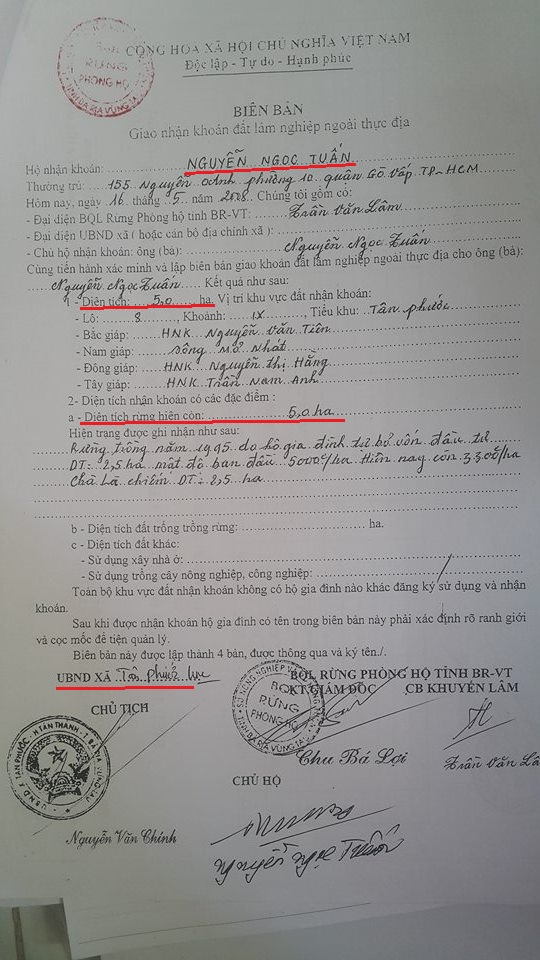 BQL
RỪNG
PHÒNG HỘ
CỘNG HÒA XÃ HỘI CHỦ NGHĨA VIỆT NAM
Độc lập - Tự do - Hạnh phúc
BIÊN BẢN
Giao nhận khoán đất lâm nghiệp ngoài thực địa
Hộ nhận khoán: NGUYỄN NGỌC TUẤN
Thường trú: 155 Nguyễn phường 10 quận Gò Vấp TP-HCM
Hôm nay, ngày 16 tháng 5 năm Chúng tôi gồm có:
- Đại diện BQL Rừng Phòng hộ tỉnh BR-VT: Trần Văn Lâm
- Đại diện UBND xã ( hoặc cán bộ địa chính xã ):
- Chủ hộ nhận khoán: ông (bà): Nguyễn Ngọc Tuấn
Cùng tiến hành xác minh và lập biên bản giao khoán đất lâm nghiệp ngoài thực địa cho ông (bà):
Nguyễn Ngọc Tuấn Kết quả như sau:
1 - Diện tích: 5,0 ha. Vị trí khu vực đất nhận khoán:
- Lô: 8, Khoảnh: IX, Tiểu khu: Tân phước
- Bắc giáp: HNK Nguyễn Văn Tiên
- Nam giáp: Sông Mỏ Nhát
- Đông giáp: HNK Nguyễn Thị Hằng
- Tây giáp: HNK Trần Nam Anh
2- Diện tích nhận khoán có các đặc điểm :
a - Diện tích rừng hiện còn: 5,0 ha
Hiện trạng được ghi nhận như sau:
Rừng trồng năm 1995 do hộ gia đình tự bỏ vốn đầu tư
DT: 2,5 ha mật độ ban đầu 5000c/ha Hiện nay còn 3300/ha
Chà Là chiếm DT: 2,5 ha
b - Diện tích đất trống trồng rừng: ha.
c - Diện tích đất khác:
- Sử dụng xây nhà ở:
- Sử dụng trồng cây nông nghiệp, công nghiệp:
Toàn bộ khu vực đất nhận khoán không có hộ gia đình nào khác đăng ký sử dụng và nhận
khoán.
Sau khi được nhận khoán hộ gia đình có tên trong biên bản này phải xác định rõ ranh giới
và cọc mốc để tiện quản lý.
Biên bản này được lập thành 4 bản, được thông qua và ký tên./.
UBND XÃ Tân Phước
BQL RỪNG PHÒNG HỘ TỈNH BR-VT
CHỦ TỊCH
KT GIÁM ĐỐC CB KHUYẾN LÂM
BQL
RỪNG
PHÒNG HỘ
Chu Bá Lợi
Trần Văn Lâ
CHỦ HỘ
Nguyễn Văn Chính
Nguyễn Ngọc Tuấn